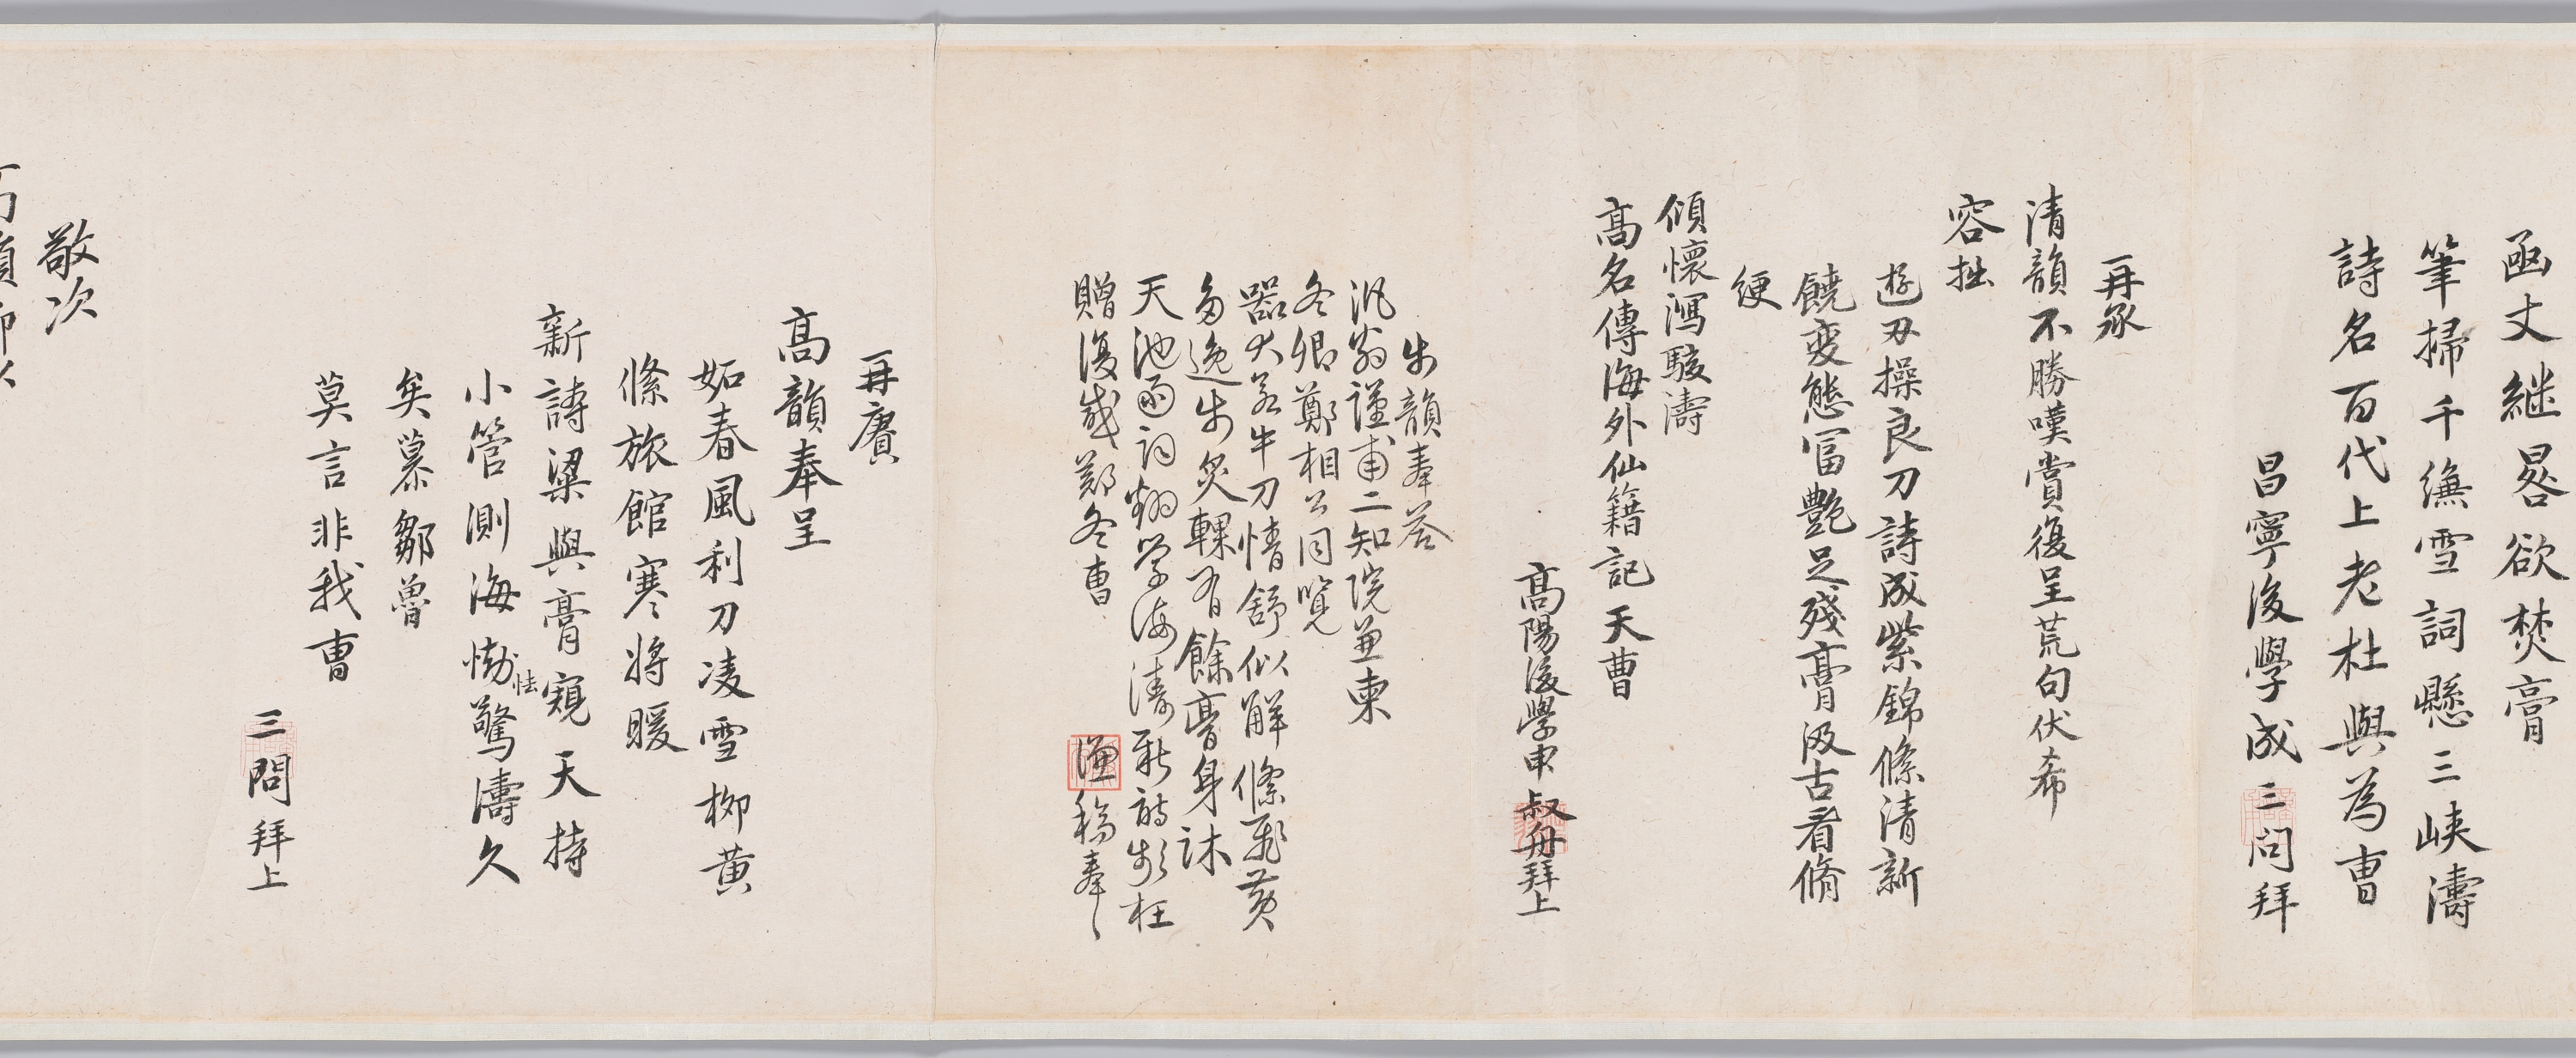 函丈継晷欲焚膏
筆掃千縑雪詞懸三峽濤
詩名百代上老杜與為曹
昌寧後學成三问拜
再承
清韻不勝嘆賞復呈荒句伏希
容拙
逰刃操良刀詩成紫錦絛清新
饒変態冨艶足殘膏汲古看脩
綆
傾懷瀉駭濤
髙名傳海外仙籍記天曹
髙陽後學申叔舟拜上
步韻奉荅
汎翁謹甫二知院兼柬
冬卿鄭相公同覽
器大若牛刀情舒似解絛飛黄
多逸步炙輠有餘膏身沐
天池雨詞翻学海濤新詩頻枉
贈復感鄭冬曹
謙稿奉
再賡
髙韻奉呈
妬春風利刀凌雪栁黄
絛旅館寒將暖
新詩粱與膏窺天持
小管測海怯驚濤久
怯
矣慕鄒魯
莫言非我曺
三問拜上
敬次